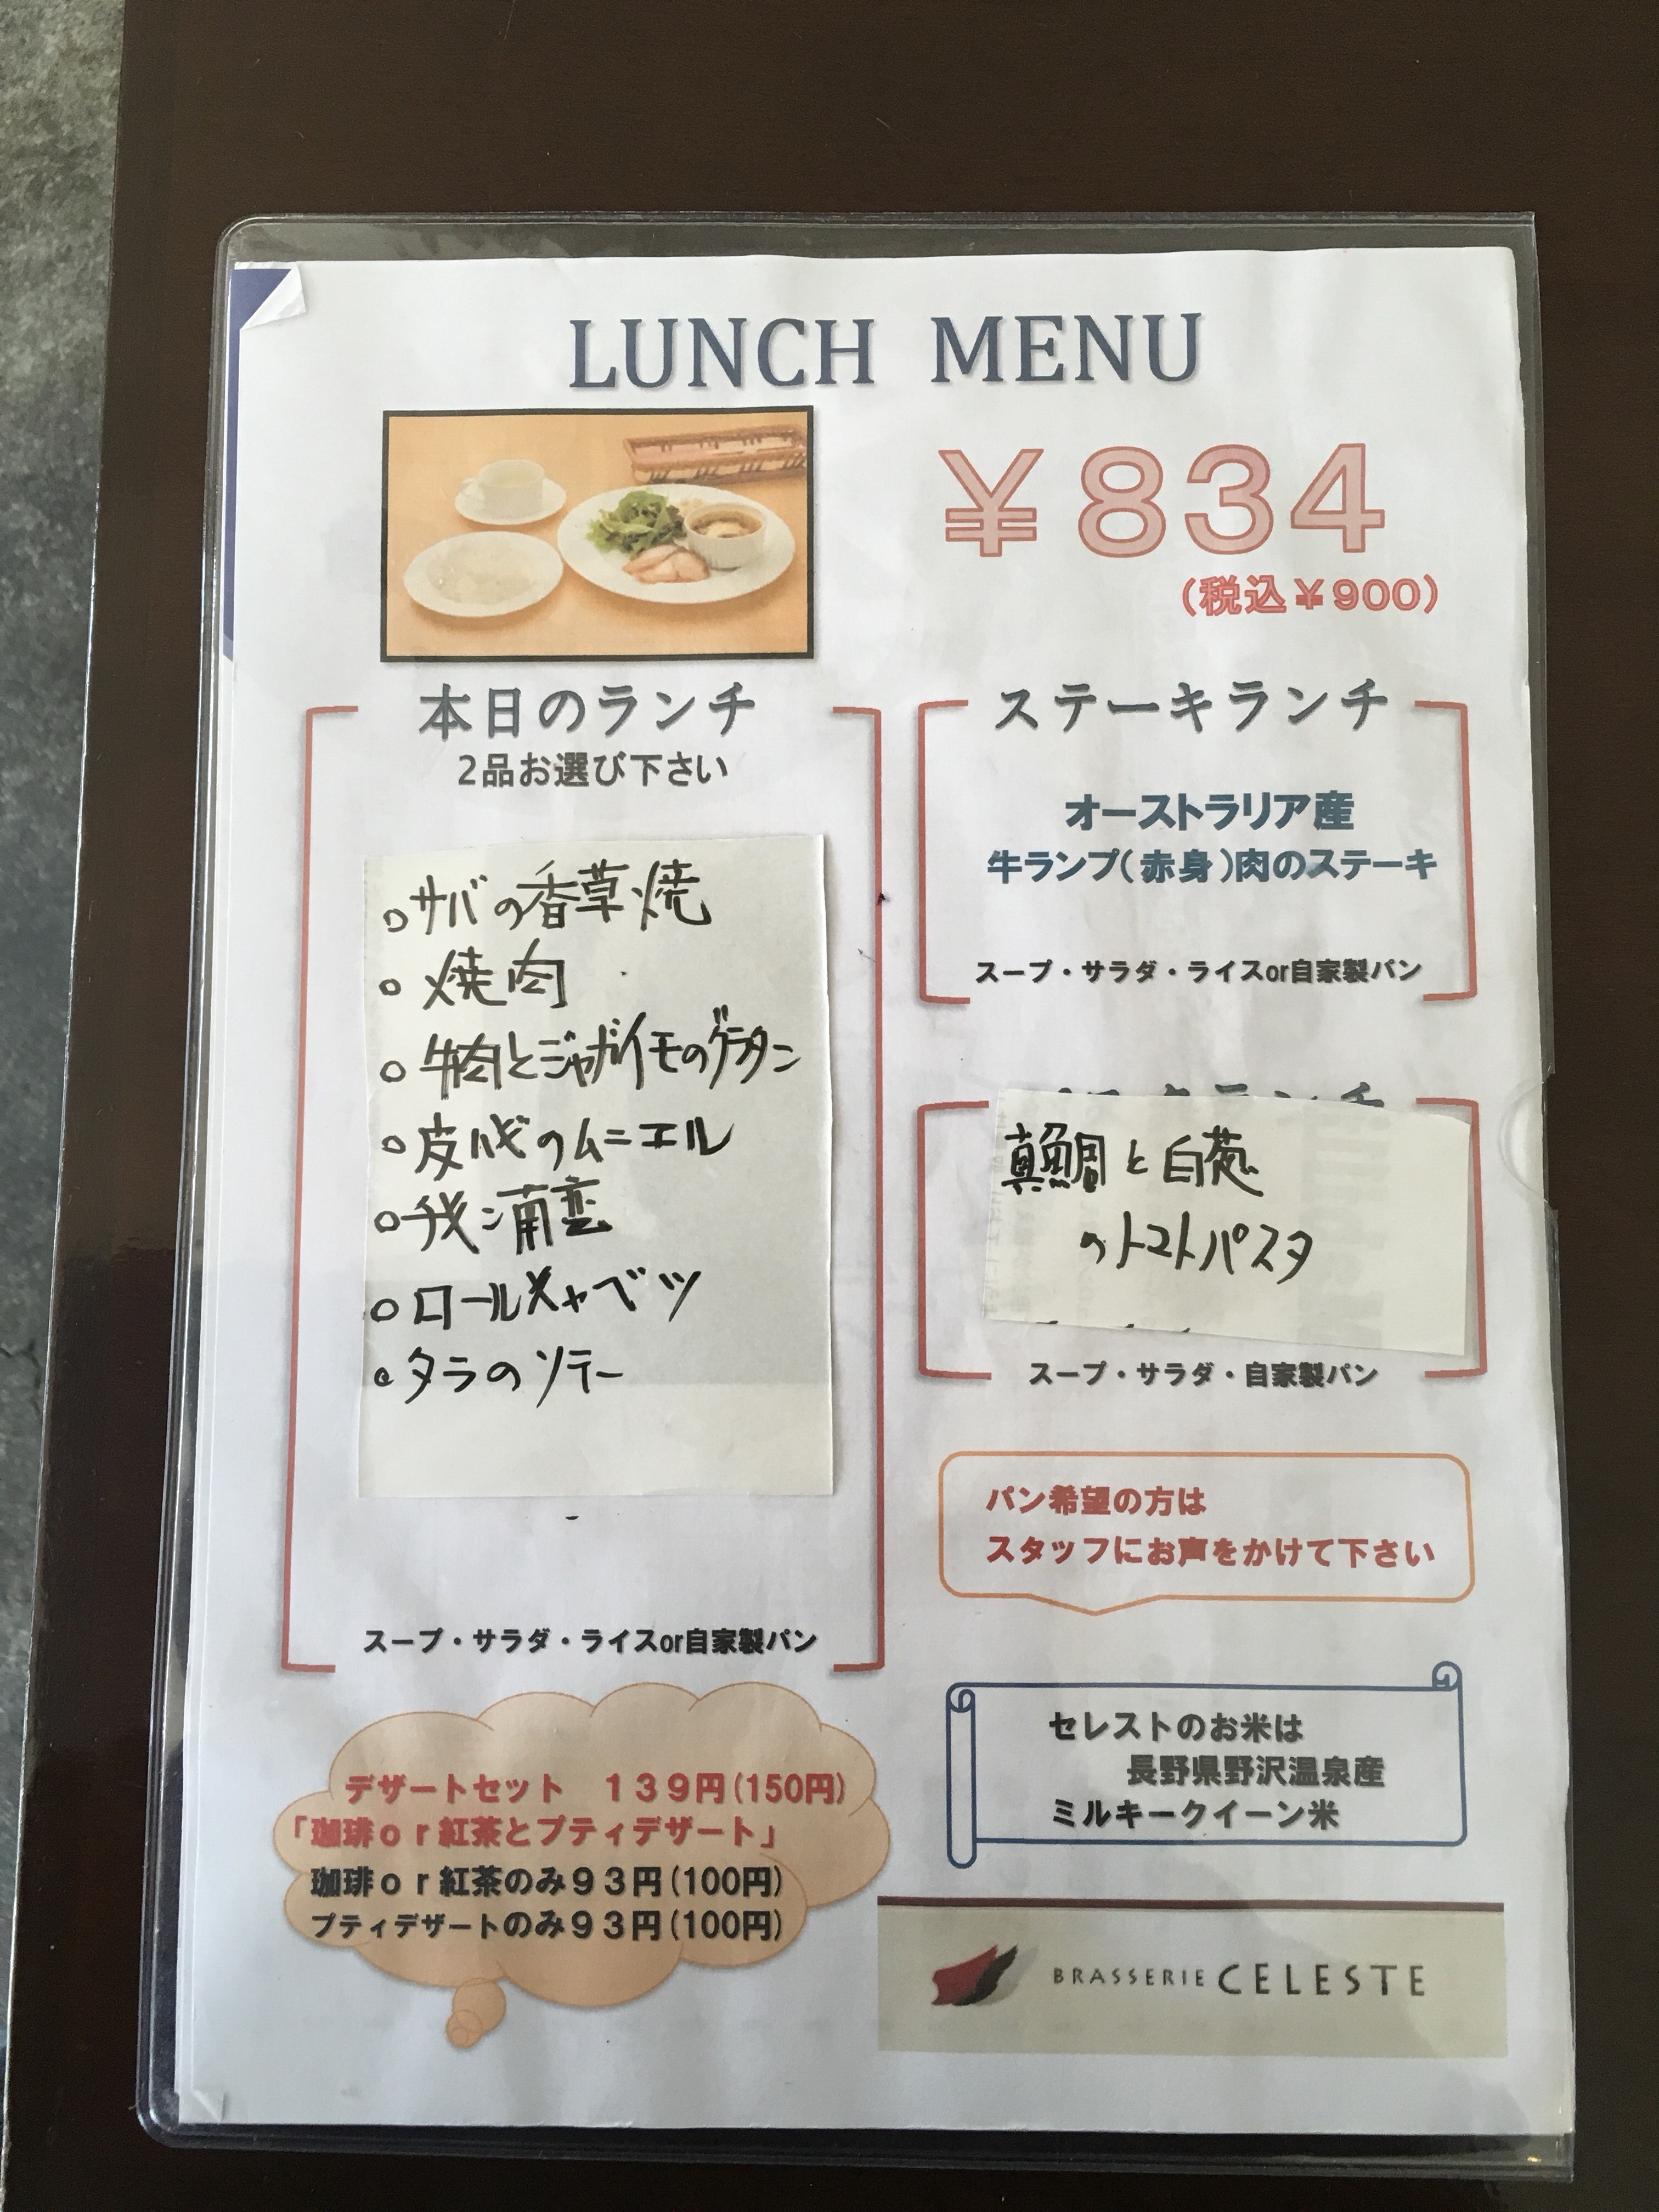 LUNCH MENU
￥834
(税込￥900)
本日のランチ
2品お選び下さい
○サバの香草焼
○焼肉
○牛肉とジャガイモのグラタン
○皮ハギのムニエル
○
○ロールキャベツ
○タラのソテー
スープ・サラダ・ライスor自家製パン
ステーキランチ
オーストラリア産
牛ランプ(赤身)肉のステーキ
スープ・サラダ・ライスor自家製パン
真鯛と白葱
のトマトパスタ
スープ・サラダ・自家製パン
パン希望の方は
スタッフにお声をかけて下さい
デザートセット １３９円(150円)
「珈琲ｏｒ紅茶とプティデザート」
珈琲ｏｒ紅茶のみ９３円(100円)
プティデザートのみ９３円(100円)
セレストのお米は
長野県野沢温泉産
ミルキークイーン米
BRASSERIE CELESTE